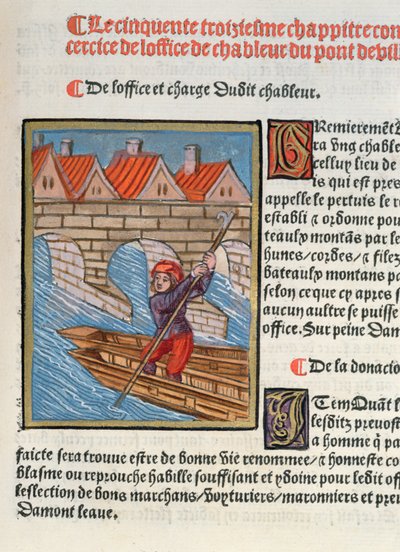 Le cinquente troiziesme chappitre con
cercice de loffice de chableur du pont de vill
De loffice et charge Dudit chableur.
PRemieremēt
ra vng chable
celluy lieu de
is qui est pres
appelle le pertuis le
establi ⁊ ordonne pou
teaulx montās par le
hunes/cordes/⁊ filez
bateaulx montans pa
selon ce que cy apres s
aucun aultre se puisse
office. Sur peine Dam
De la donacio
ITem Quāt l
lesditz preuost
a homme q̄ pa
faicte sera trouue estre de bonne vie renommee/⁊ honneste co
blasme ou reprouche habille souffisant et ydoine pour ledit off
leslection de bons marchans/voyturiers/maronniers et preu
Damont leaue.